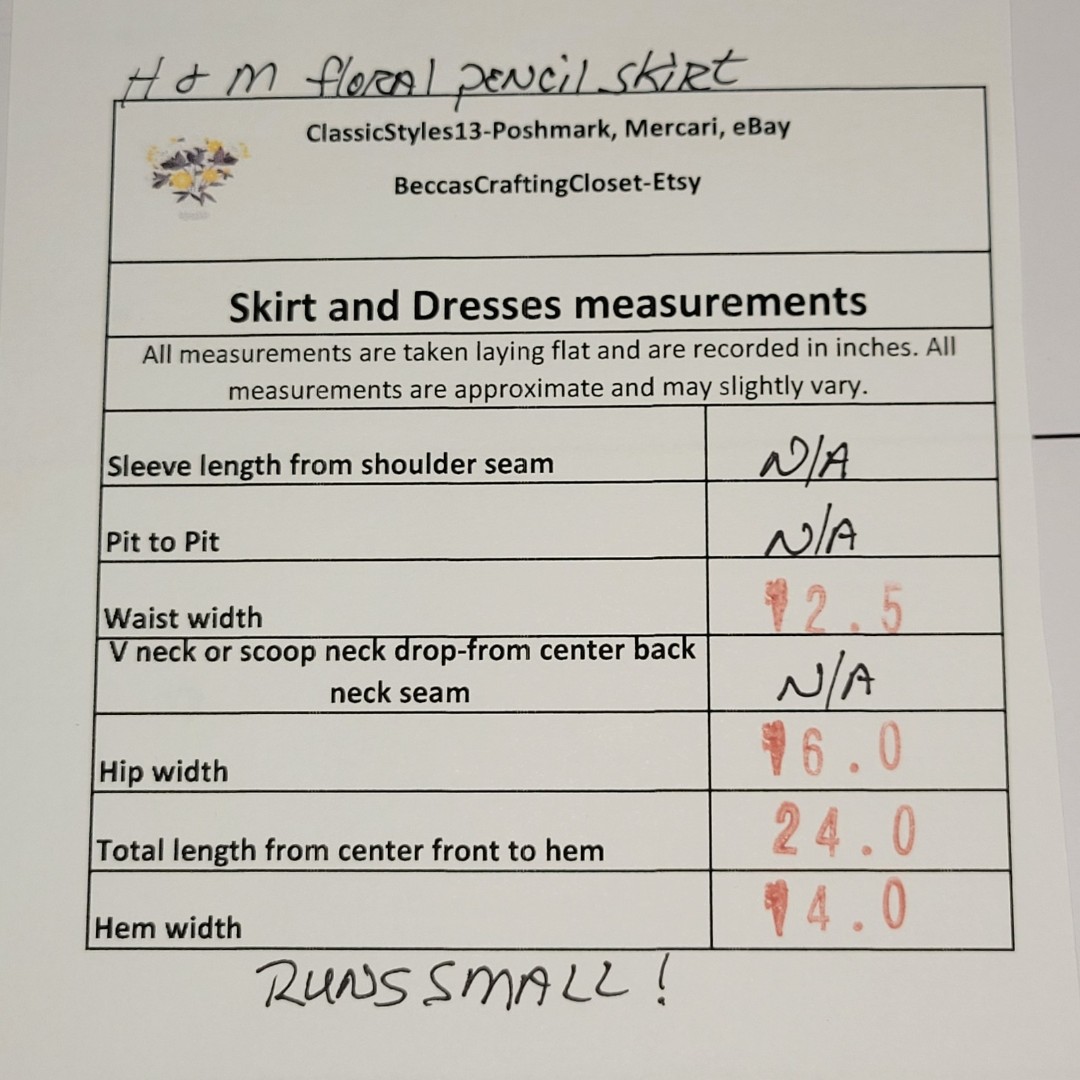 H & M floRAl pENcil skiRt
ClassicStyles13-Poshmark, Mercari, eBay
BeccasCraftingCloset-Etsy
Skirt and Dresses measurements
All measurements are taken laying flat and are recorded in inches. All
measurements are approximate and may slightly vary.
Sleeve length from shoulder seam N/A
Pit to Pit N/A
Waist width 12.5
V neck or scoop neck drop-from center back
neck seam N/A
Hip width 16.0
Total length from center front to hem 24.0
Hem width 14.0
RUNS SMALL!